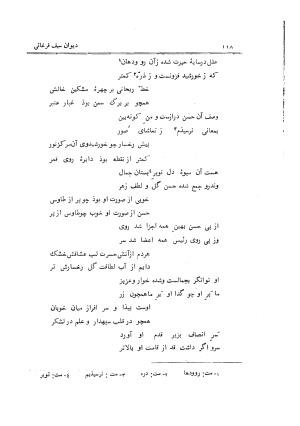 ۱۱۸ دیوان سیف فرغانی
عقل در سایهٔ حیرت شده زآن رو ودهان۱
که زخورشید فزونست و ز ذرّه۲ کمتر
خط ریحانی بر چهرهٔ مشکین خالش
همچو بر برگ سمن بود غبار عنبر
وصف آن حسن درازست و من کوته‌بین
بمعانی نرسیدم۳ ز تماشای صور
پیش رخسار چو خورشیدوی آن‌مرکز نور
کمتر از نقطه بوذ دایرهٔ روی قمر
هست آن میوهٔ دل نوبر۴ بستان جمال
وندرو جمع شده حسن گل و لطف زهر
خوبی از صورت او بوذ چو پر از طاوس
حسن از صورت او خوب چوطاوس از پر
از پی حسن بهین همه اجزا شد روی
وز پی روی رئیس همه اعضا شد سر
هردم ازآتش حسرت لب عشاقش خشک
دایم از آب لطافت گل رخسارش تر
او توانگر بجمالست وشده خوار وعزیز
ما بر او چو گدا او بر ما همچون زر
اوست پیدا و سر افراز میان خوبان
همچو در قلب سپهدار و علم در لشکر
سر انصاف بزیر قدم او آورد
سرو اگر داشت قد از قامت او بالاتر
۱- مت: رودها ۲- مت: دره ۳- مت: نرسیذیم ۴- مت: توبر